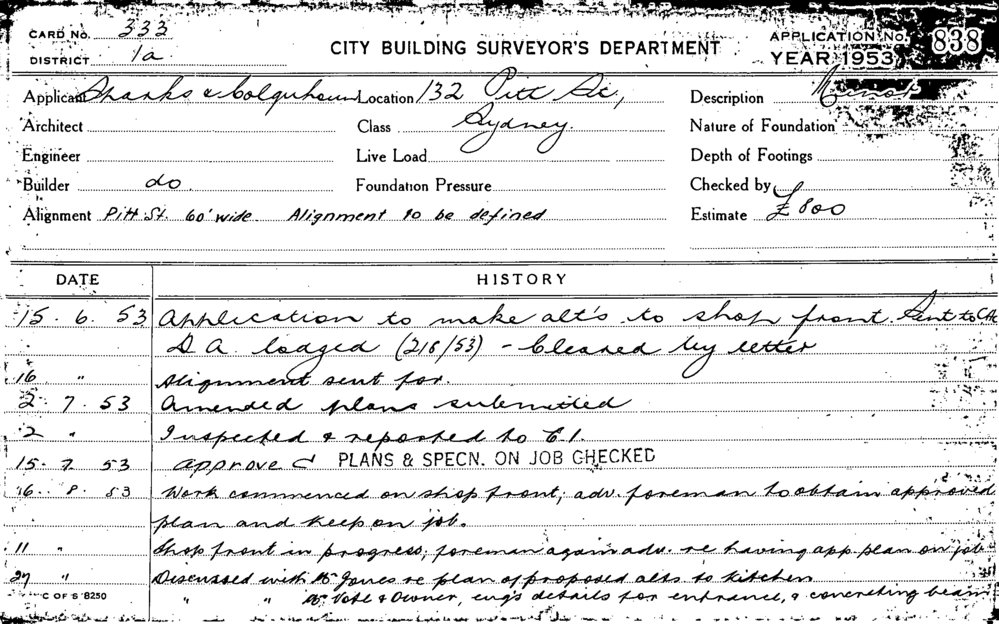 CARD No. 333
DISTRICT 1a
CITY BUILDING SURVEYOR'S DEPARTMENT
APPLICATION No. 838
YEAR 1953
Applicant Shanks & Colquhoun Location 132 Pitt St, Description Minor
Architect Class Sydney. Nature of Foundation
Engineer Live Load Depth of Footings
Builder do. Foundation Pressure Checked by
Alignment Pitt St. 60' wide. Alignment to be defined Estimate £800
DATE HISTORY
15. 6. 53 Application to make alt's. to shop front. Sent to
D A. lodged (218/53) - Cleared by letter
16 " Alignment sent for.
2. 7. 53 Amended plans submitted
2 " Inspected & reported to C.I.
15. 7. 53 Approved PLANS & SPECN. ON JOB CHECKED
6. 8. 53 Work commenced on shop front; adv. foreman to obtain approved
plan and keep on job.
11 " Shop front in progress; foreman again adv. re having app. plan on job
27 " Discussed with Mr Jones re plan of proposed alts to kitchen
" " Mr & Owner, eng's details for entrance, & concreting beam
C OF S 8250